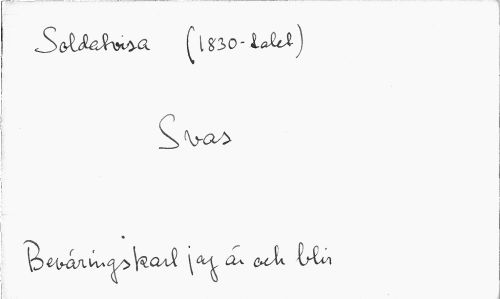 Soldatvisa (1830-talet)
Svas
Beväringskarl jag är och blir